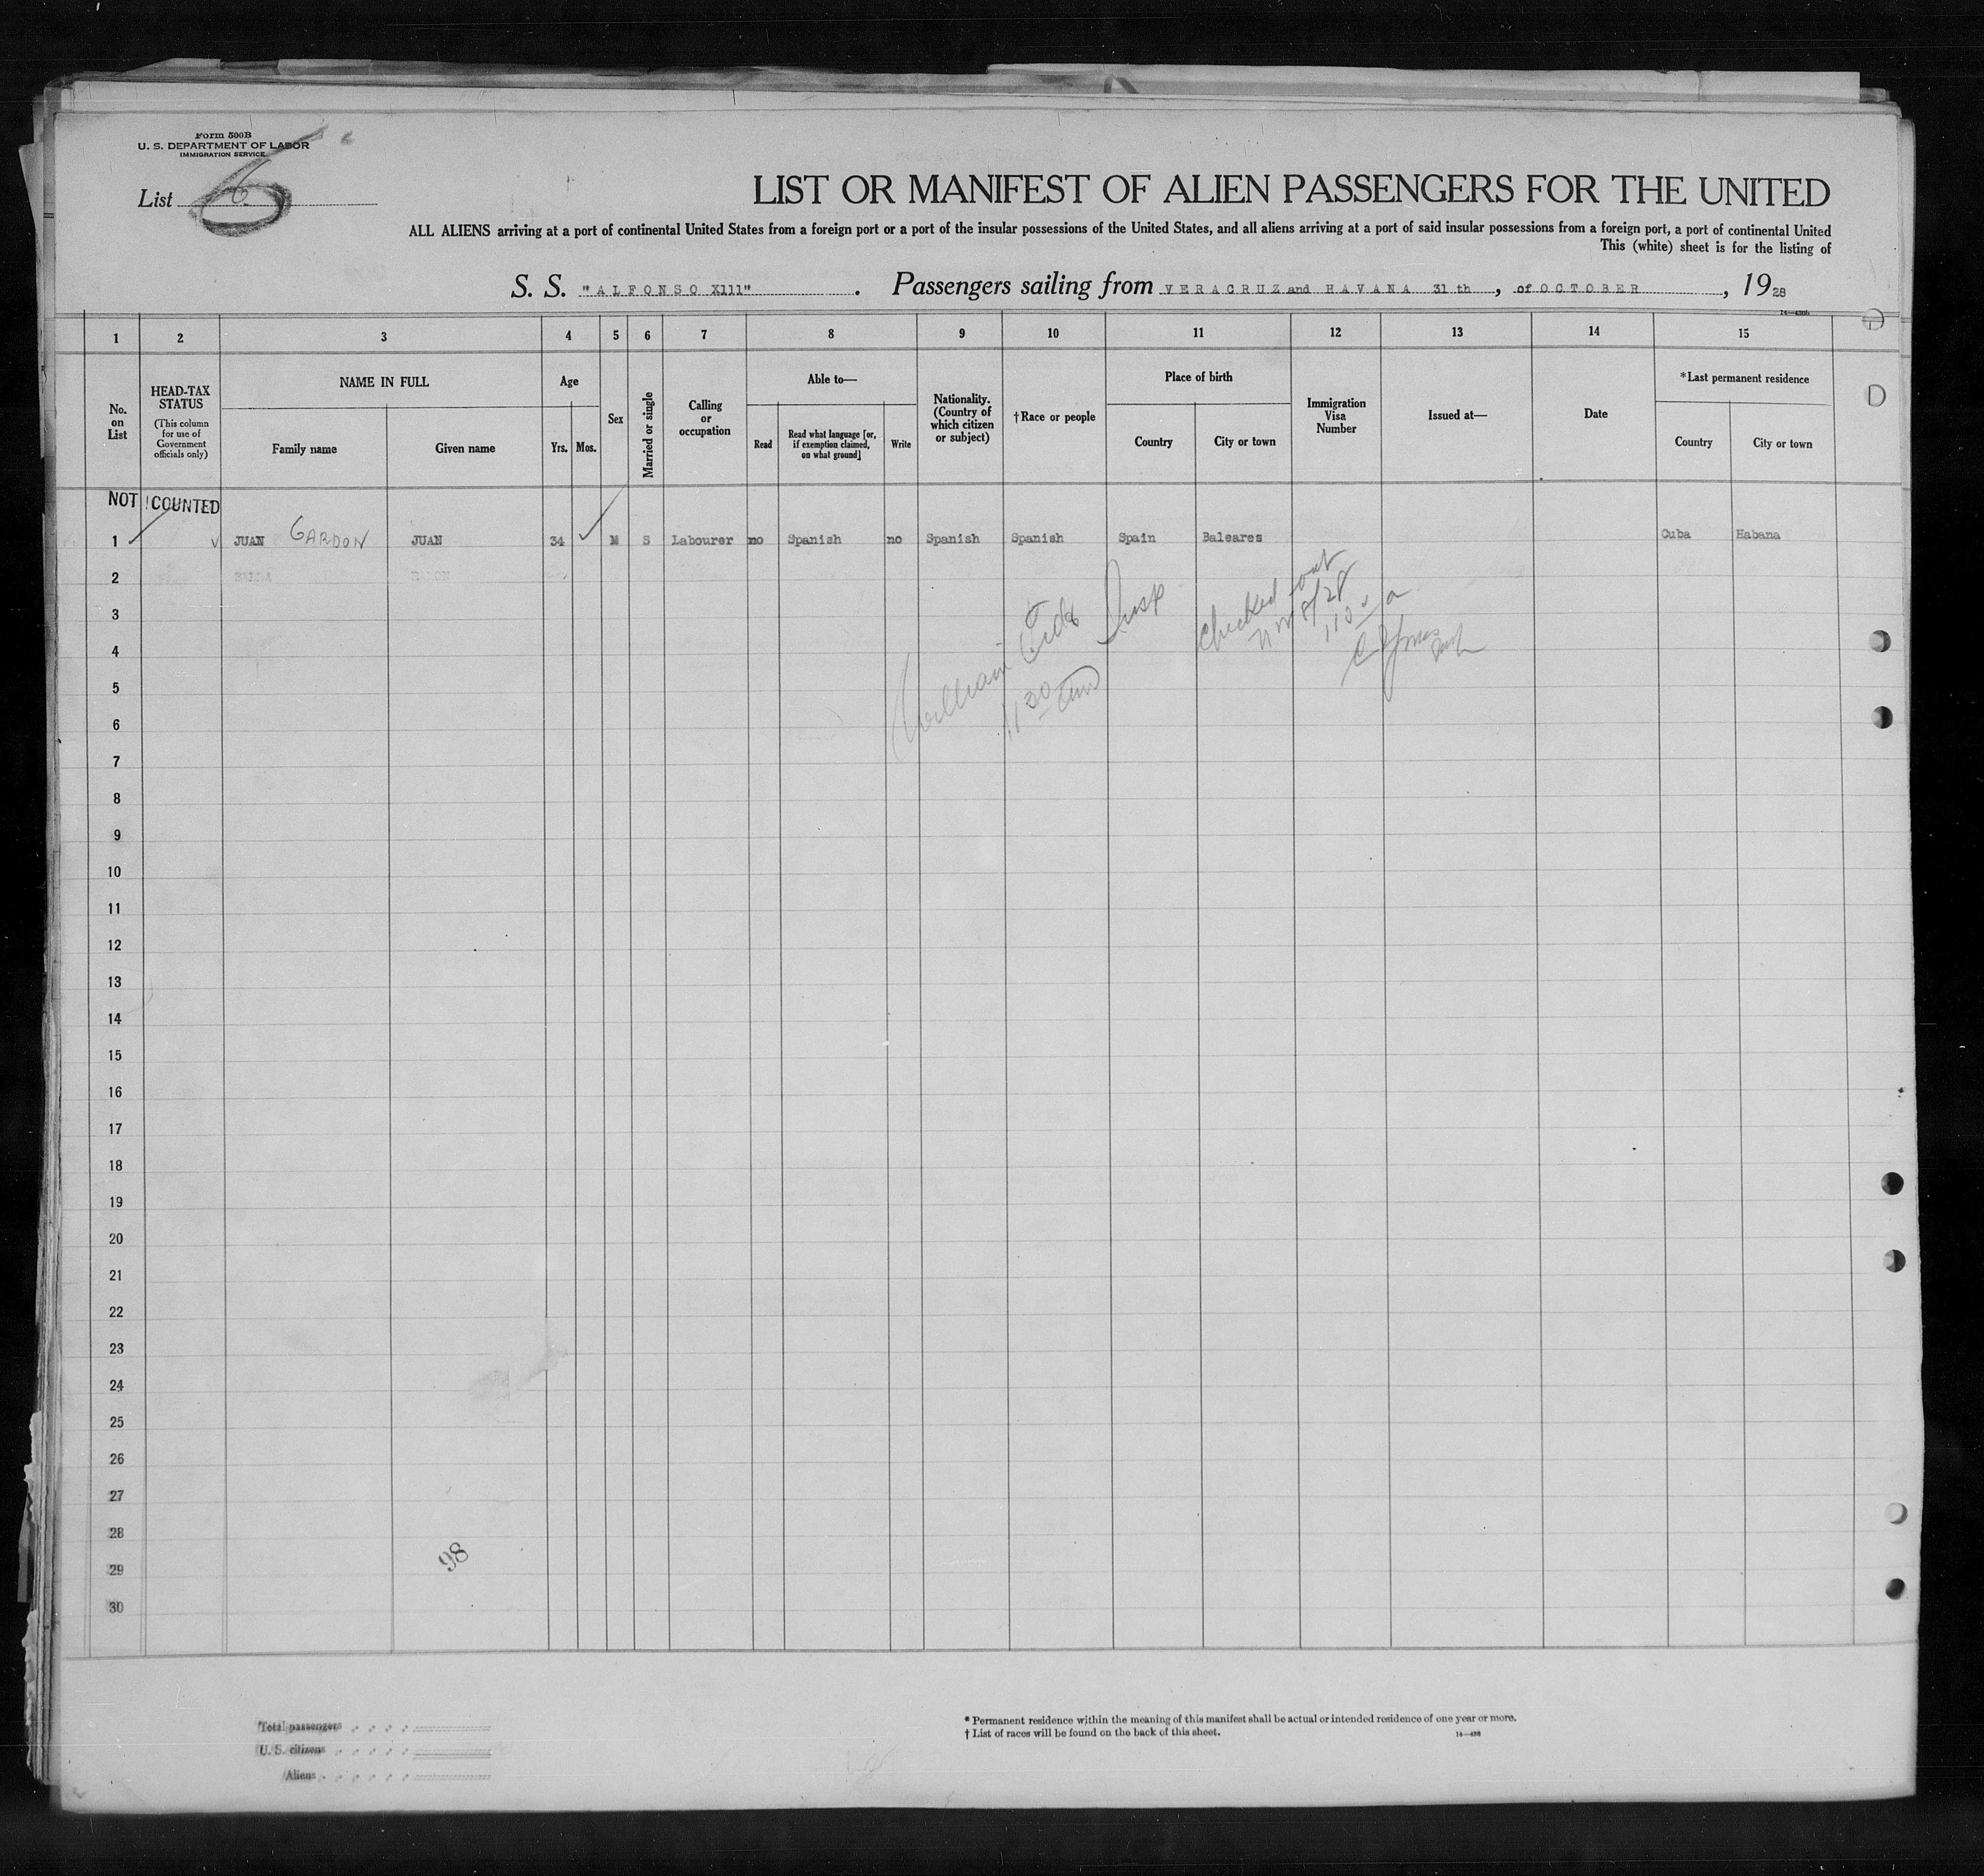 Form 500B
U. S. DEPARTMENT OF LABOR
IMMIGRATION SERVICE
List 6
LIST OR MANIFEST OF ALIEN PASSENGERS FOR THE UNITED
ALL ALIENS arriving at a port of continental United States from a foreign port or a port of the insular possessions of the United States, and all aliens arriving at a port of said insular possessions from a foreign port, a port of continental United
This (white) sheet is for the listing of
S. S. "ALFONSO X111". Passengers sailing from VERACRUZ and HAVANA 31 th, of OCTOBER, 1928
1 2 3 4 5 6 7 8 9 10 11 12 13 14 15
No. on List
HEAD-TAX STATUS
(This column for use of Government officials only)
NAME IN FULL
Family name Given name
Age
Yrs. Mos.
Sex
Married or single
Calling or occupation
Able to—
Read
Read what language [or, if exemption claimed, on what ground]
Write
Nationality. (Country of which citizen or subject)
†Race or people
Place of birth
Country City or town
Immigration Visa Number
Issued at—
Date
*Last permanent residence
Country City or town
NOT COUNTED
1 JUAN GARDON JUAN 34 M S Labourer no Spanish no Spanish Spanish Spain Baleares Cuba Habana
2
3
4
5
6
7
8
9
10
11
12
13
14
15
16
17
18
19
20
21
22
23
24
25
26
27
28
29
30
William Insp
11 30
checked out
Nov 8/28
98
Total passengers
U. S. citizens
Aliens
* Permanent residence within the meaning of this manifest shall be actual or intended residence of one year or more.
† List of races will be found on the back of this sheet.